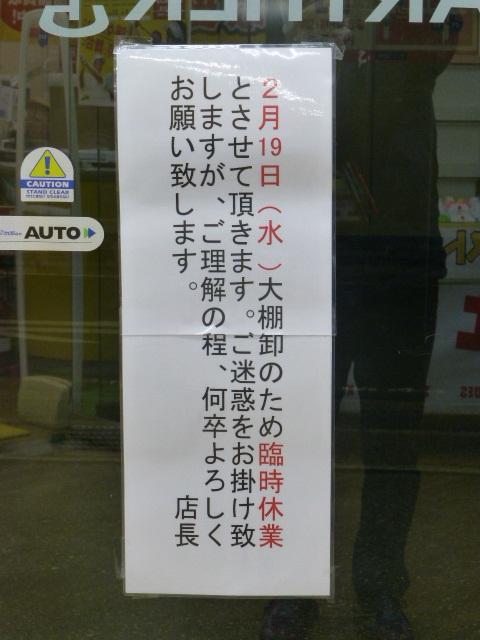 ２月19日（水）大棚卸のため臨時休業
とさせて頂きます。ご迷惑をお掛け致
しますが、ご理解の程、何卒よろしく
お願い致します。
店長
CAUTION
STAND CLEAR
AUTO